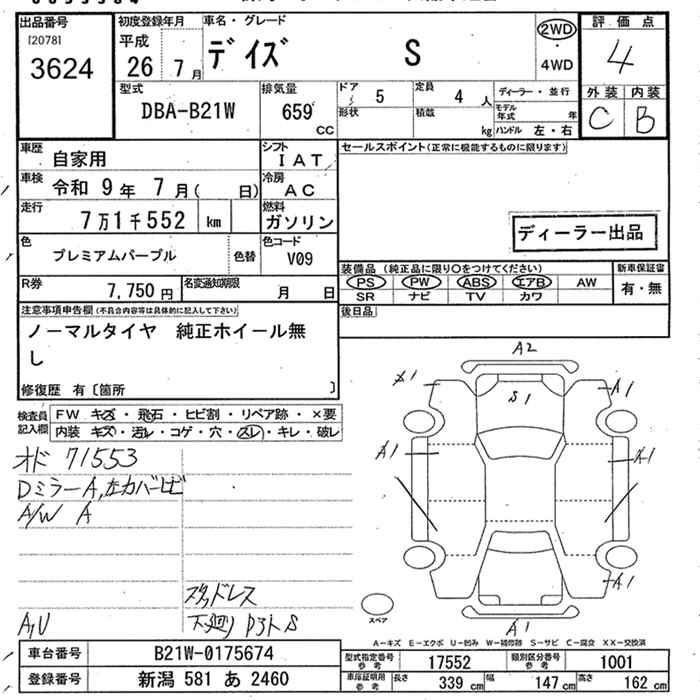 出品番号
[20781]
3624
初度登録年月
平成
26 7月
車名・グレード
デイズ S
2WD
4WD
評価点
4
外装 内装
C B
型式
DBA-B21W
排気量
659
CC
ドア
5
形状
定員
4人
積載
kg
ディーラー・並行
モデル年式 年
ハンドル 左・右
車歴
自家用
シフト
IAT
車検
令和 9年 7月( 日)
冷房
AC
走行
7万1千552 km
燃料
ガソリン
色
プレミアムパープル
色替
色コード
V09
R券
7,750円
名変通知期限
月 日
セールスポイント(正常に機能するものに限ります)
ディーラー出品
装備品(純正品に限り○をつけてください)
PS PW ABS エアB AW
SR ナビ TV カワ
新車保証書
有・無
後日品
注意事項申告欄(不具合内容等は具体的に記入して下さい)
ノーマルタイヤ 純正ホイール無
し
修復歴 有〔箇所 〕
検査員記入欄
FW キズ・飛石・ヒビ割・リペア跡・×要
内装 キズ・汚レ・コゲ・穴・スレ・キレ・破レ
オド 71553
DミラーA,左カバーヒビ
A/W A
スタッドレス
A,U
下廻り D3ト S
A2
A1
S1
A1
A1
A1
A1
A1
スペア
A-キズ E-エクボ U-凹み W-補修跡 S-サビ C-腐食 XX-交換済
車台番号
B21W-0175674
登録番号
新潟 581 あ 2460
型式指定番号
参考
17552
類別区分番号
参考
1001
車庫証明用
参考
長さ
339 cm
幅
147 cm
高さ
162 cm